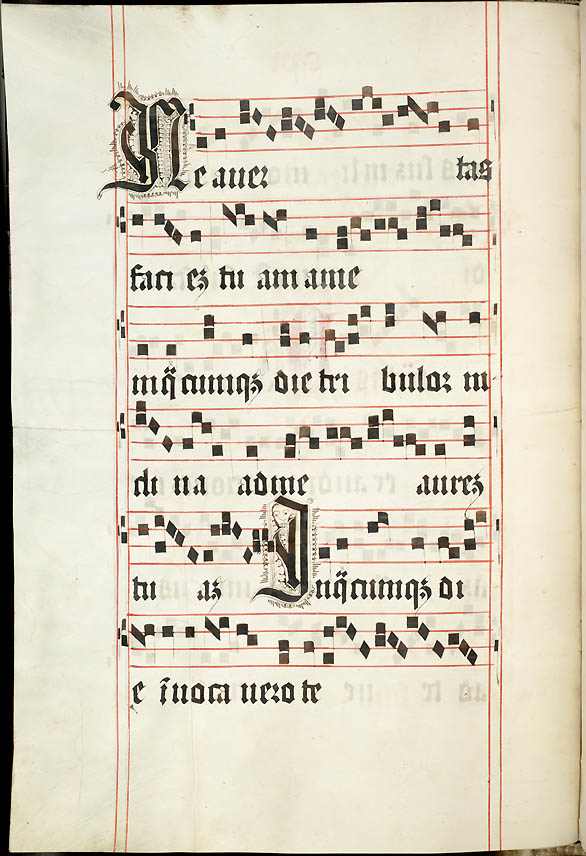 Ne auer tas
faciez tu am ame
inq̃cumqz die tri bulor in
cli na adme aurez
tu az Inq̃cumqz di
e ĩuoca uero te